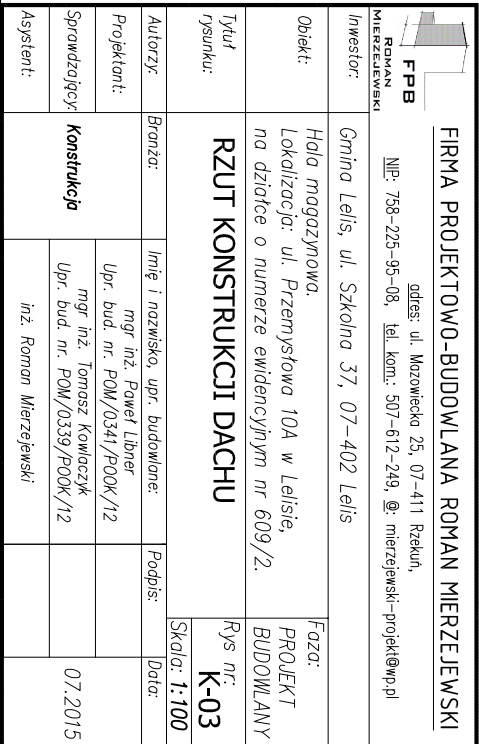 FPB
ROMAN
MIERZEJEWSKI
FIRMA PROJEKTOWO-BUDOWLANA ROMAN MIERZEJEWSKI
adres: ul. Mazowiecka 25, 07-411 Rzekuń,
NIP: 758-225-95-08, tel. kom.: 507-612-249, @: mierzejewski-projekt@wp.pl
Inwestor: Gmina Lelis, ul. Szkolna 37, 07-402 Lelis
Obiekt:
Hala magazynowa.
Lokalizacja: ul. Przemysłowa 10A w Lelisie,
na działce o numerze ewidencyjnym nr 609/2.
Faza:
PROJEKT
BUDOWLANY
Tytuł
rysunku:
RZUT KONSTRUKCJI DACHU
Rys nr:
K-03
Skala: 1:100
Autorzy: Branża: Imię i nazwisko, upr. budowlane: Podpis: Data:
Projektant:
mgr inż. Paweł Libner
Upr. bud. nr. POM/0341/POOK/12
Sprawdzający: Konstrukcja
mgr inż. Tomasz Kowlaczyk
Upr. bud. nr. POM/0339/POOK/12
07.2015
Asystent: inż. Roman Mierzejewski